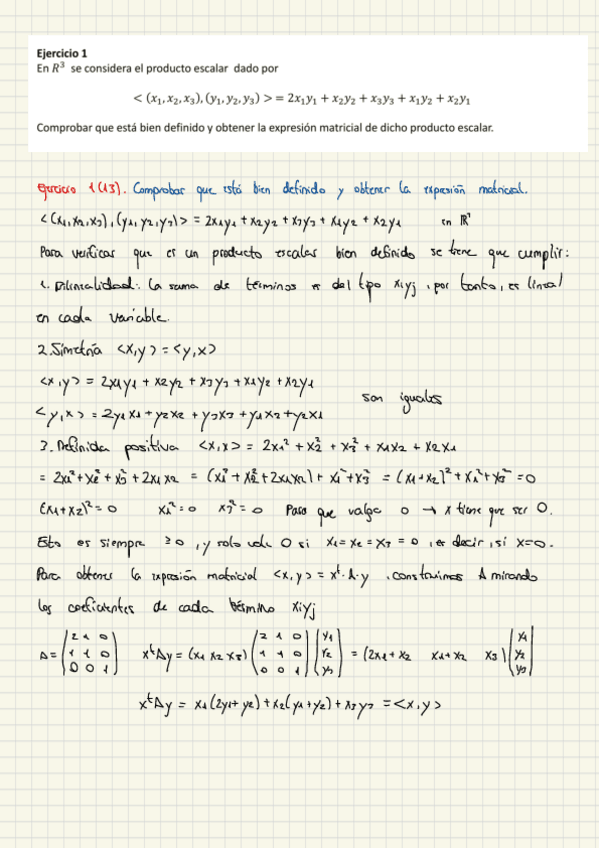 Ejercicio 1
En R³ se considera el producto escalar dado por
< (x₁, x₂, x₃), (y₁, y₂, y₃) >= 2x₁y₁ + x₂y₂ + x₃y₃ + x₁y₂ + x₂y₁
Comprobar que está bien definido y obtener la expresión matricial de dicho producto escalar.
Ejercicio 1 (13). Comprobar que está bien definido y obtener la expresión matricial.
<(x1,x2,x3),(y1,y2,y3)> = 2x1y1 + x2y2 + x3y3 + x1y2 + x2y1 en ℝ³
Para verificar que es un producto escalar bien definido se tiene que cumplir:
1. Bilinealidad: la suma de términos es del tipo xiyj, por tanto, es lineal
en cada variable.
2. Simetría <x,y> = <y,x>
<x,y> = 2x1y1 + x2y2 + x3y3 + x1y2 + x2y1
son iguales
<y,x> = 2y1x1 + y2x2 + y3x3 + y1x2 + y2x1
3. Definida positiva <x,x> = 2x1² + x2² + x3² + x1x2 + x2x1
= 2x1² + x2² + x3² + 2x1x2 = (x1² + x2² + 2x1x2) + x1² + x3² = (x1+x2)² + x1² + x3² = 0
(x1+x2)² = 0 x1² = 0 x3² = 0 Para que valga 0 → x tiene que ser 0.
Esto es siempre ≥0, y solo vale 0 si x1 = x2 = x3 = 0, es decir, si x=0.
Para obtener la expresión matricial <x,y> = xᵗ·A·y, construimos A mirando
los coeficientes de cada término xiyj
A = (2 1 0 / 1 1 0 / 0 0 1) xᵗAy = (x1 x2 x3) (2 1 0 / 1 1 0 / 0 0 1) (y1 / y2 / y3) = (2x1+x2 x1+x2 x3) (y1 / y2 / y3)
xᵗAy = x1(2y1+y2) + x2(y1+y2) + x3y3 = <x,y>